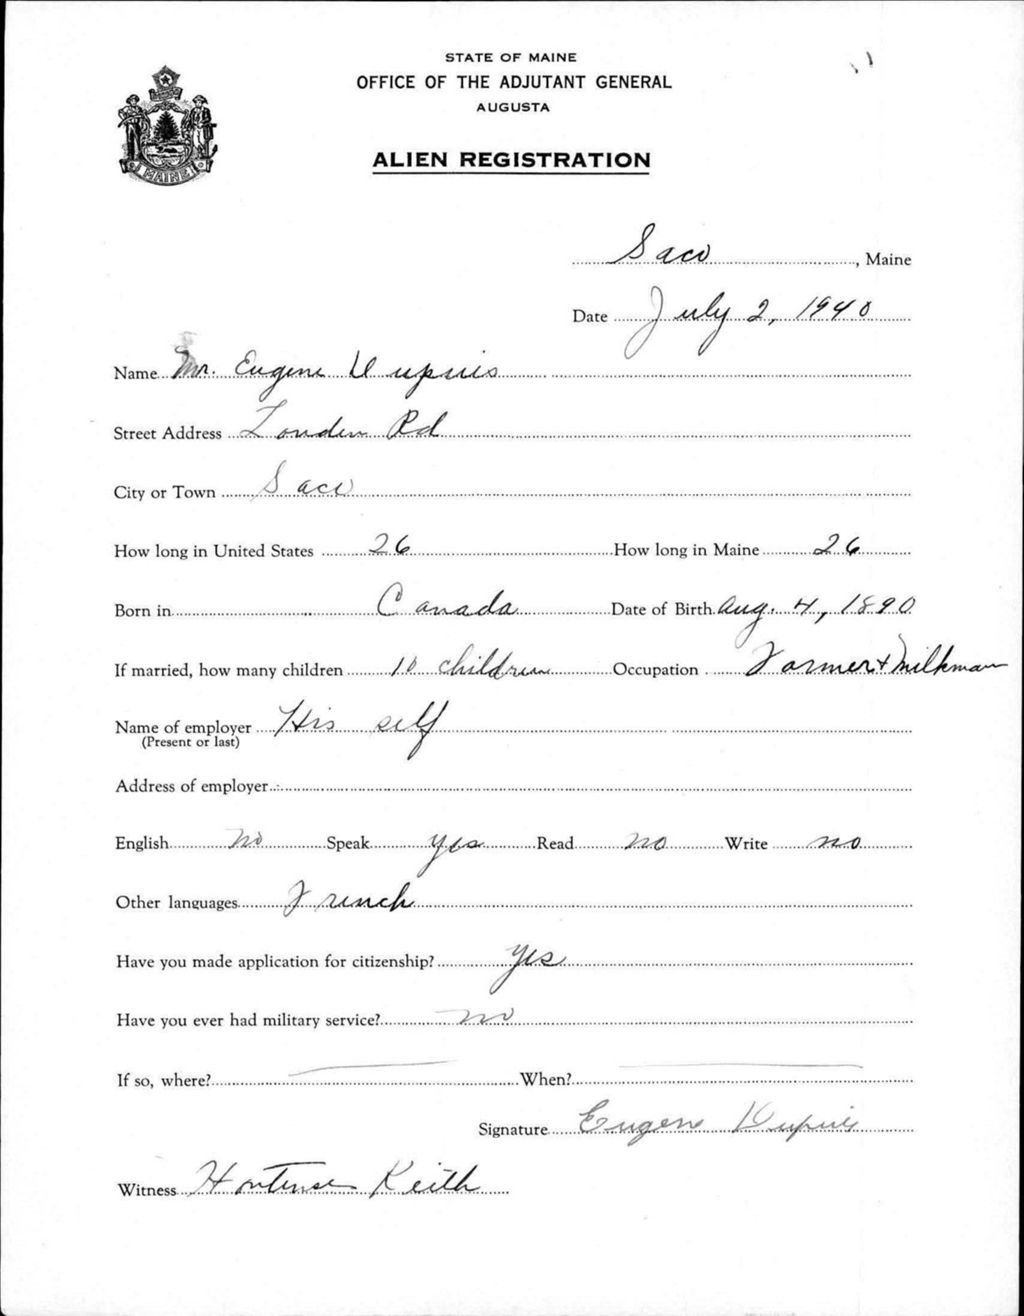 STATE OF MAINE
OFFICE OF THE ADJUTANT GENERAL
AUGUSTA
ALIEN REGISTRATION
MAINE
Saco, Maine
Date July 2, 1940
Name Mr. Eugene Dupuis
Street Address Louden Rd
City or Town Saco
How long in United States 26 How long in Maine 26
Born in Canada Date of Birth Aug. 4, 1890
If married, how many children 10 children Occupation Farmer + Milkman
Name of employer His self
(Present or last)
Address of employer
English no Speak yes Read no Write no
Other languages French
Have you made application for citizenship? yes
Have you ever had military service? no
If so, where? When?
Signature Eugene Dupuis
Witness Hortense Keith